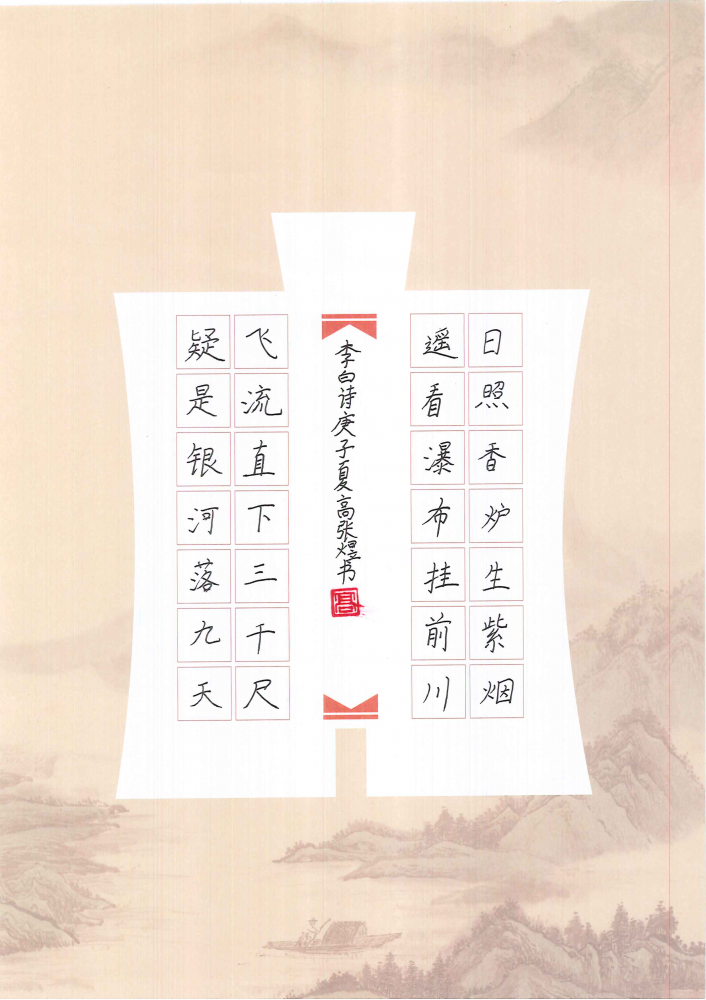 日照香炉生紫烟
遥看瀑布挂前川
李白诗庚子夏高张煜书
高
飞流直下三千尺
疑是银河落九天